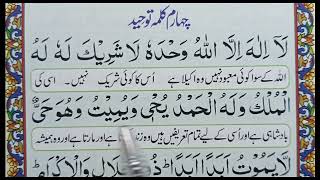 چہارم کلمہ توحید
لَآ اِلٰهَ اِلَّا اللّٰهُ وَحْدَهٗ لَا شَرِيْكَ لَهٗ لَهُ
اللہ کے سوا کوئی معبود نہیں وہ اکیلا ہے اُس کا کوئی شریک نہیں۔ اسی کی
الْمُلْكُ وَلَهُ الْحَمْدُ يُحْيٖ وَيُمِيْتُ وَهُوَحَيٌّ
بادشاہی ہے اور اُسی کے لیے تمام تعریفیں ہیں وہ زندہ ہے اور مارتا ہے اور وہ ہمیشہ
لَّا يَمُوْتُ اَبَدًا اَبَدًا ؕ ذُو الْجَلَالِ وَالْاِكْرَامِ ؕ